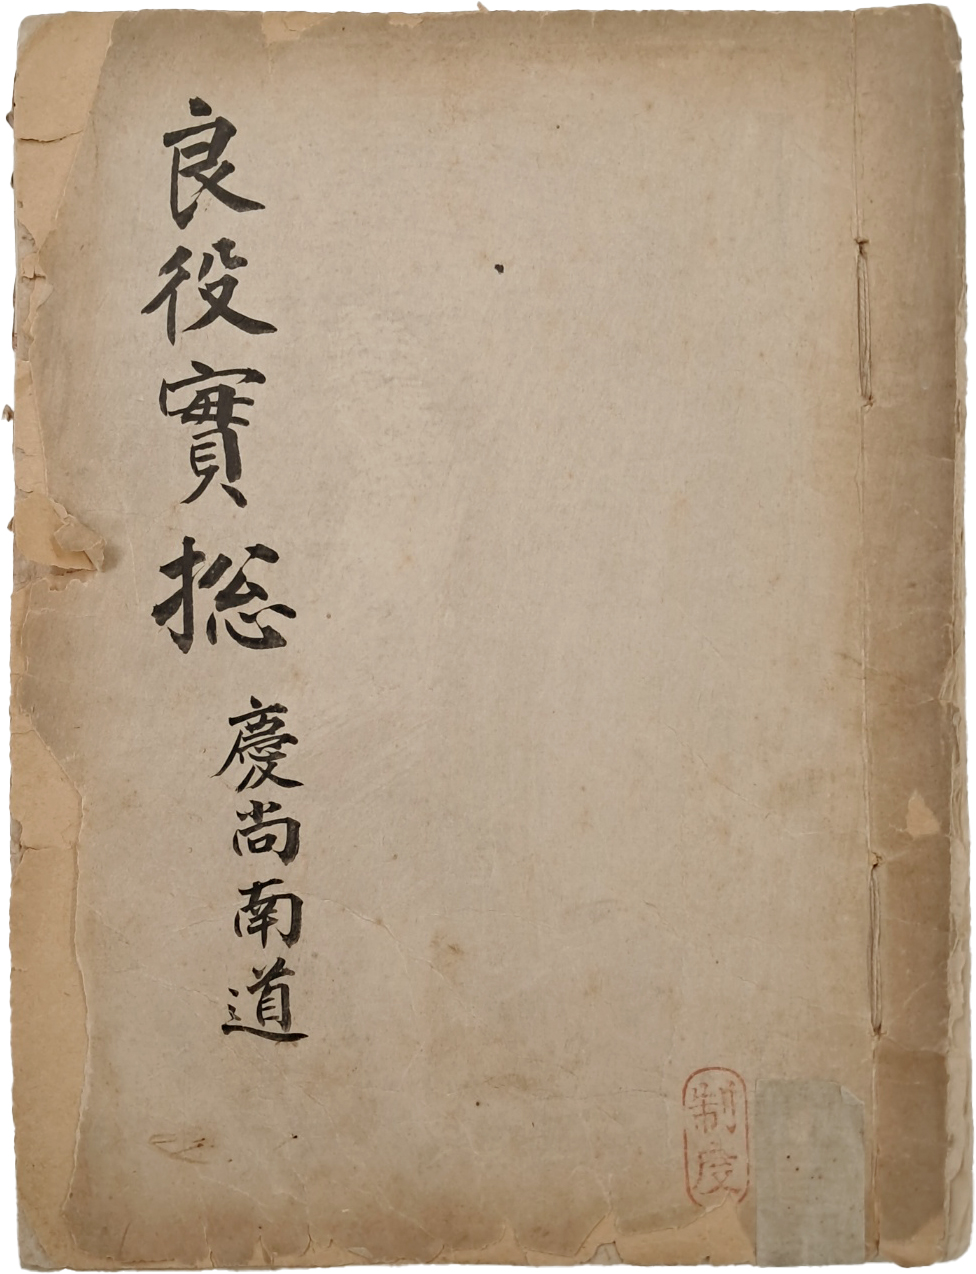 良役實摠
慶尚南道
制度